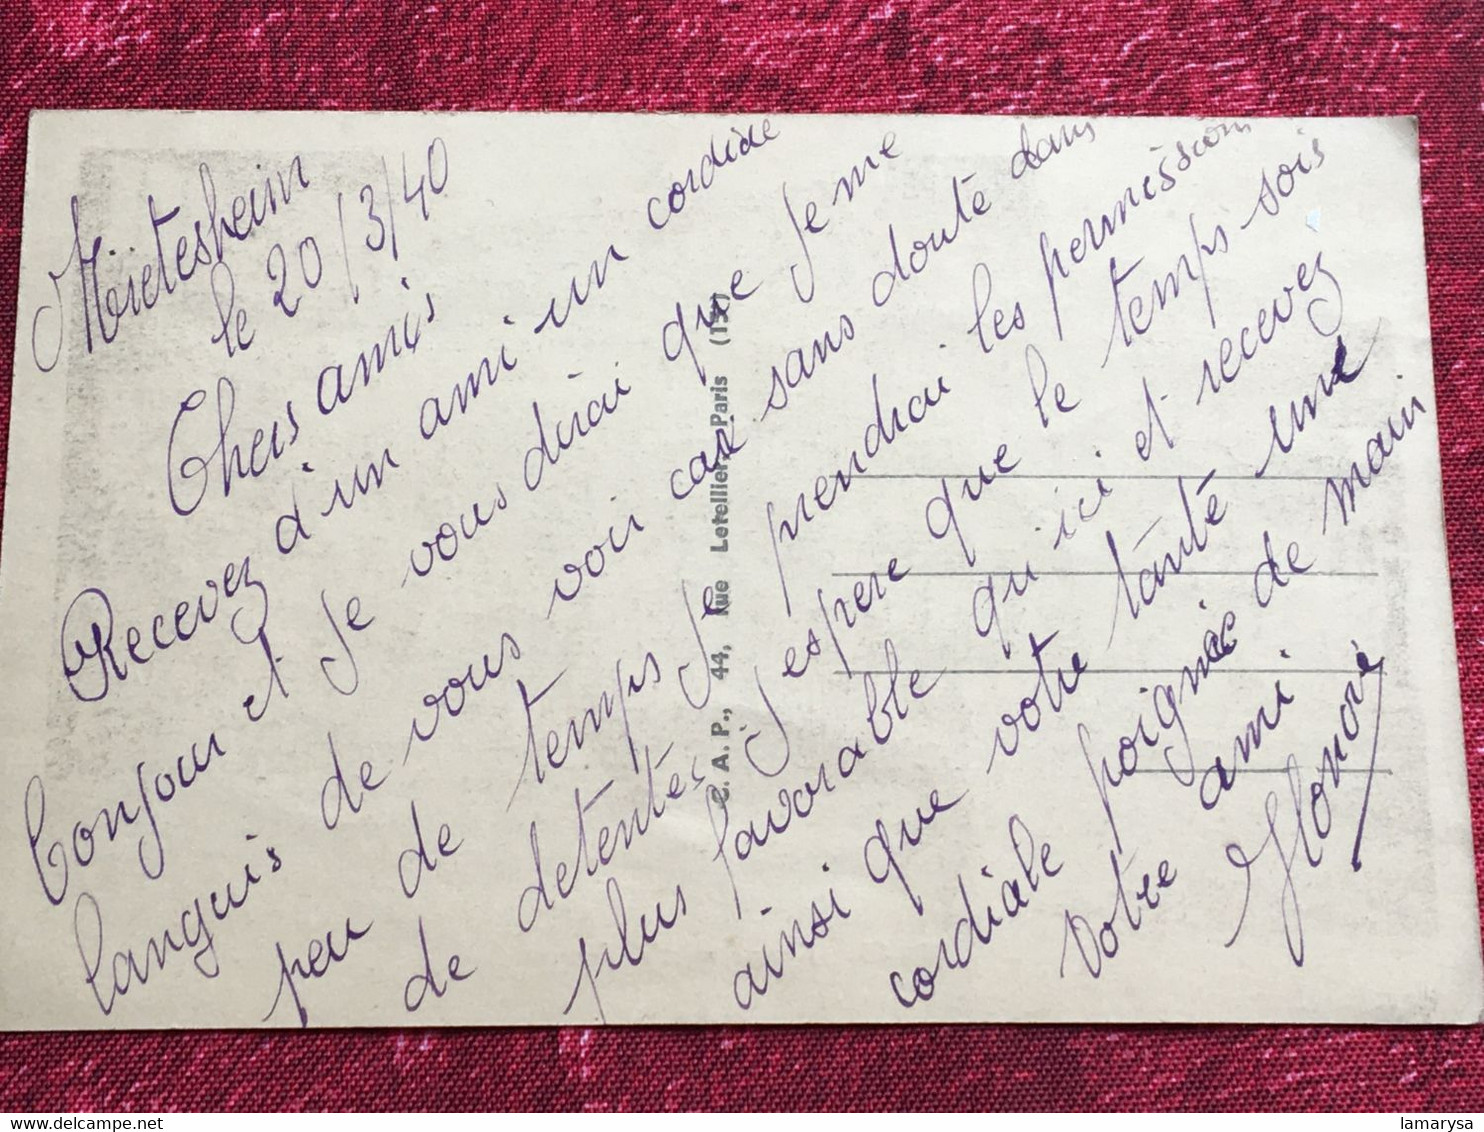 Mietesheim
le 20/3/40
Chers amis
Recevez d'un ami un cordiale
bonjour et Je vous dirai que Je me
languis de vous voir car sans doute dans
peu de temps Je prendrai les permissions
de detentes J'espere que le temps sois
plus favorable qu'ici et recevez
ainsi que votre tante une
cordiale poignée de main
Votre ami
Honoré
C. A. P., 44, Rue Letellier, Paris (15e)
lamarysa